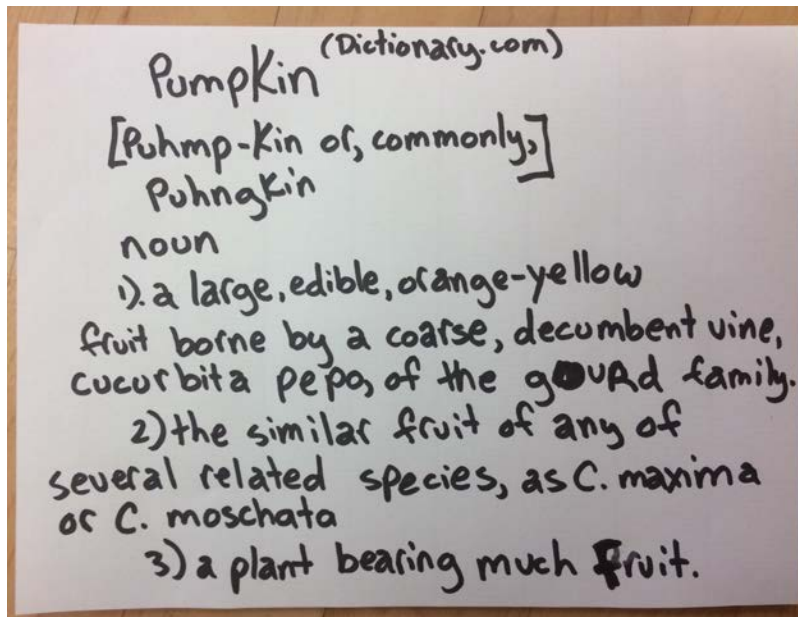 (Dictionary.com)
Pumpkin
[Puhmp-Kin or, commonly,]
Puhngkin
noun
1). a large, edible, orange-yellow
fruit borne by a coarse, decumbent vine,
cucurbita pepo, of the gouRd family.
2) the similar fruit of any of
several related species, as C. maxima
or C. moschata
3) a plant bearing much fruit.